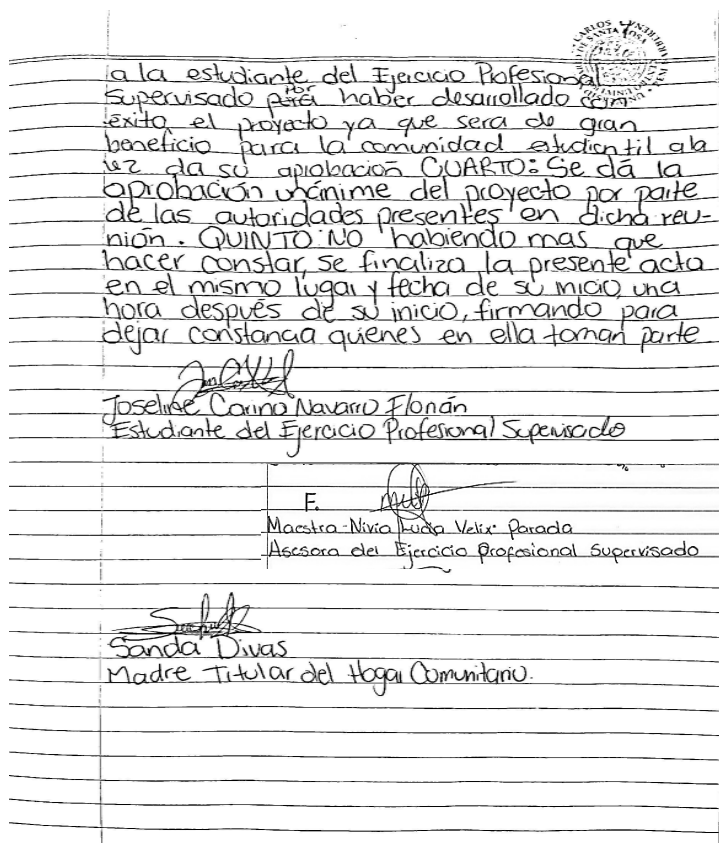 CARLOS
SANTA ROSA
a la estudiante del Ejercicio Profesional
Supervisado por haber desarrollado con
éxito, el proyecto ya que sera de gran
beneficio para la comunidad estudiantil a la
vez da su aprobación CUARTO: Se dá la
aprobación unánime del proyecto por parte
de las autoridades presentes en dicha reu-
nión. QUINTO: NO habiendo mas que
hacer constar, se finaliza la presente acta
en el mismo lugar y fecha de su inicio, una
hora después de su inicio, firmando para
dejar constancia quienes en ella toman parte
Joseline Corina Navarro Florián
Estudiante del Ejercicio Profesional Supervisado
F.
Maestra Nivia Lucia Velix Parada
Asesora del Ejercicio Profesional Supervisado
Sanda Divas
Madre Titular del Hogar Comunitario.